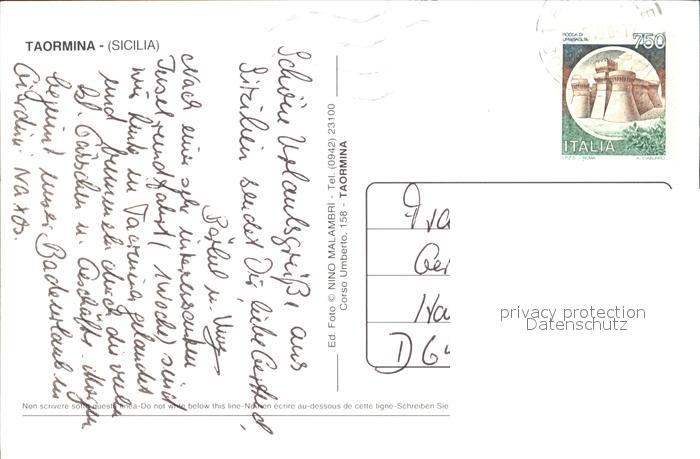 TAORMINA - (SICILIA)
Schöne Urlaubsgrüße aus
Sizilien sendet Dir, liebe
Bärbel u.
Nach einer sehr interessanten
Inselrundfahrt (1 Woche) sind
wir heute in Taormina gelandet
und bummeln durch die vielen
Gässchen u. Geschäfte. Morgen
beginnt unser Badeurlaub in
Giardini Naxos.
Ed. Foto © NINO MALAMBRÌ - Tel. (0942) 23100
Corso Umberto, 158 - TAORMINA
ROCCA DI
URBISAGLIA
750
ITALIA
I.P.Z.S. - ROMA
Fra
Ger
Ha
D 64
privacy protection
Datenschutz
Non scrivere sotto questa linea-Do not write below this line-Ne rien écrire au-dessous de cette ligne-Schreiben Sie